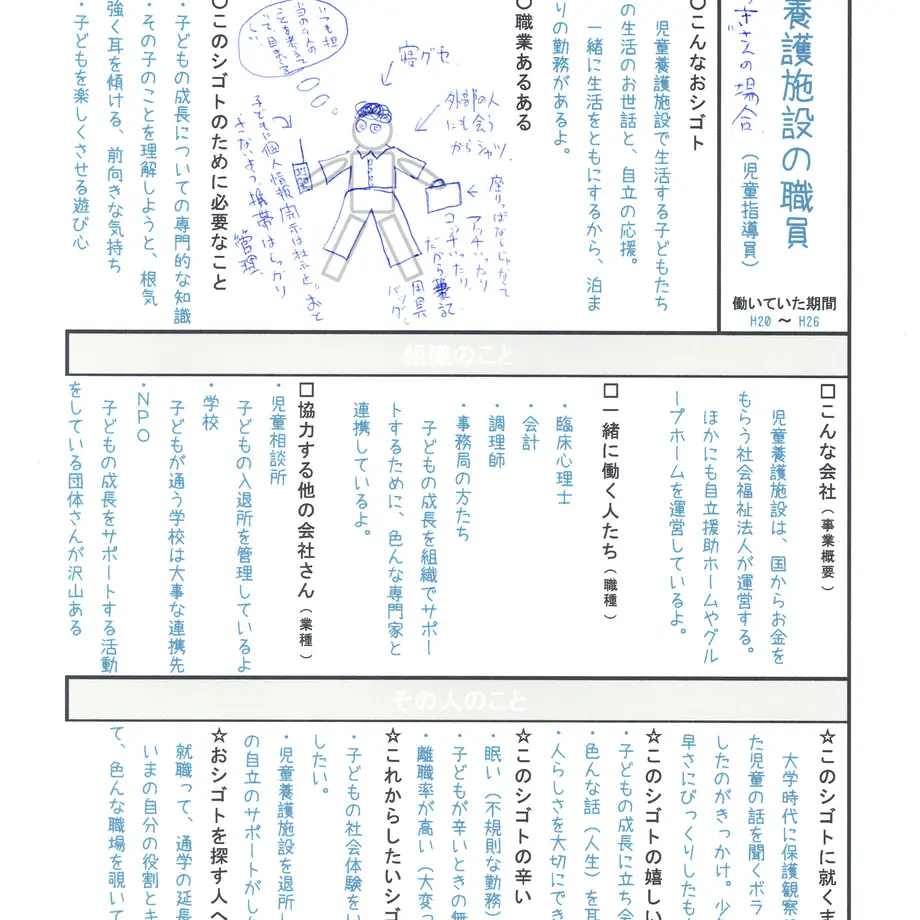 養護施設の職員
さんの場合
(児童指導員)
働いていた期間
H20 ～ H26
〇こんなおシゴト
児童養護施設で生活する子どもたち
の生活のお世話と、自立の応援。
一緒に生活をともにするから、泊ま
りの勤務があるよ。
〇職業あるある
寝グセ
外部の人
にも会う
からシャツ
座りっぱなしじゃなくて
アッチいったり
コッチいったり
だから筆記
用具
バッグ
いつも担
当の人の
ことを考えて
子どもに個人情報開示は
携帯はしっかり
管理
〇このシゴトのために必要なこと
・子どもの成長についての専門的な知識
・その子のことを理解しようと、根気
強く耳を傾ける、前向きな気持ち
・子どもを楽しくさせる遊び心
組織のこと
□こんな会社(事業概要)
児童養護施設は、国からお金を
もらう社会福祉法人が運営する。
ほかにも自立援助ホームやグル
ープホームを運営しているよ。
□一緒に働く人たち(職種)
・臨床心理士
・会計
・調理師
・事務局の方たち
子どもの成長を組織でサポー
トするために、色んな専門家と
連携しているよ。
□協力する他の会社さん(業種)
・児童相談所
子どもの入退所を管理しているよ
・学校
子どもが通う学校は大事な連携先
・NPO
子どもの成長をサポートする活動
をしている団体さんが沢山ある
その人のこと
☆このシゴトに就くま
大学時代に保護観察
た児童の話を聞くボラ
したのがきっかけ。少
早さにびっくりしたも
☆このシゴトの嬉しい
・子どもの成長に立ち会
・色んな話(人生)を耳
・人らしさを大切にでき
☆このシゴトの辛い
・眠い(不規則な勤務)
・子どもが辛いときの無
・離職率が高い(大変っ
☆これからしたいシゴ
・子どもの社会体験をい
したい。
・児童養護施設を退所し
の自立のサポートがし
☆おシゴトを探す人へ
就職って、通学の延長
いまの自分の役割とキ
て、色んな職場を覗いて